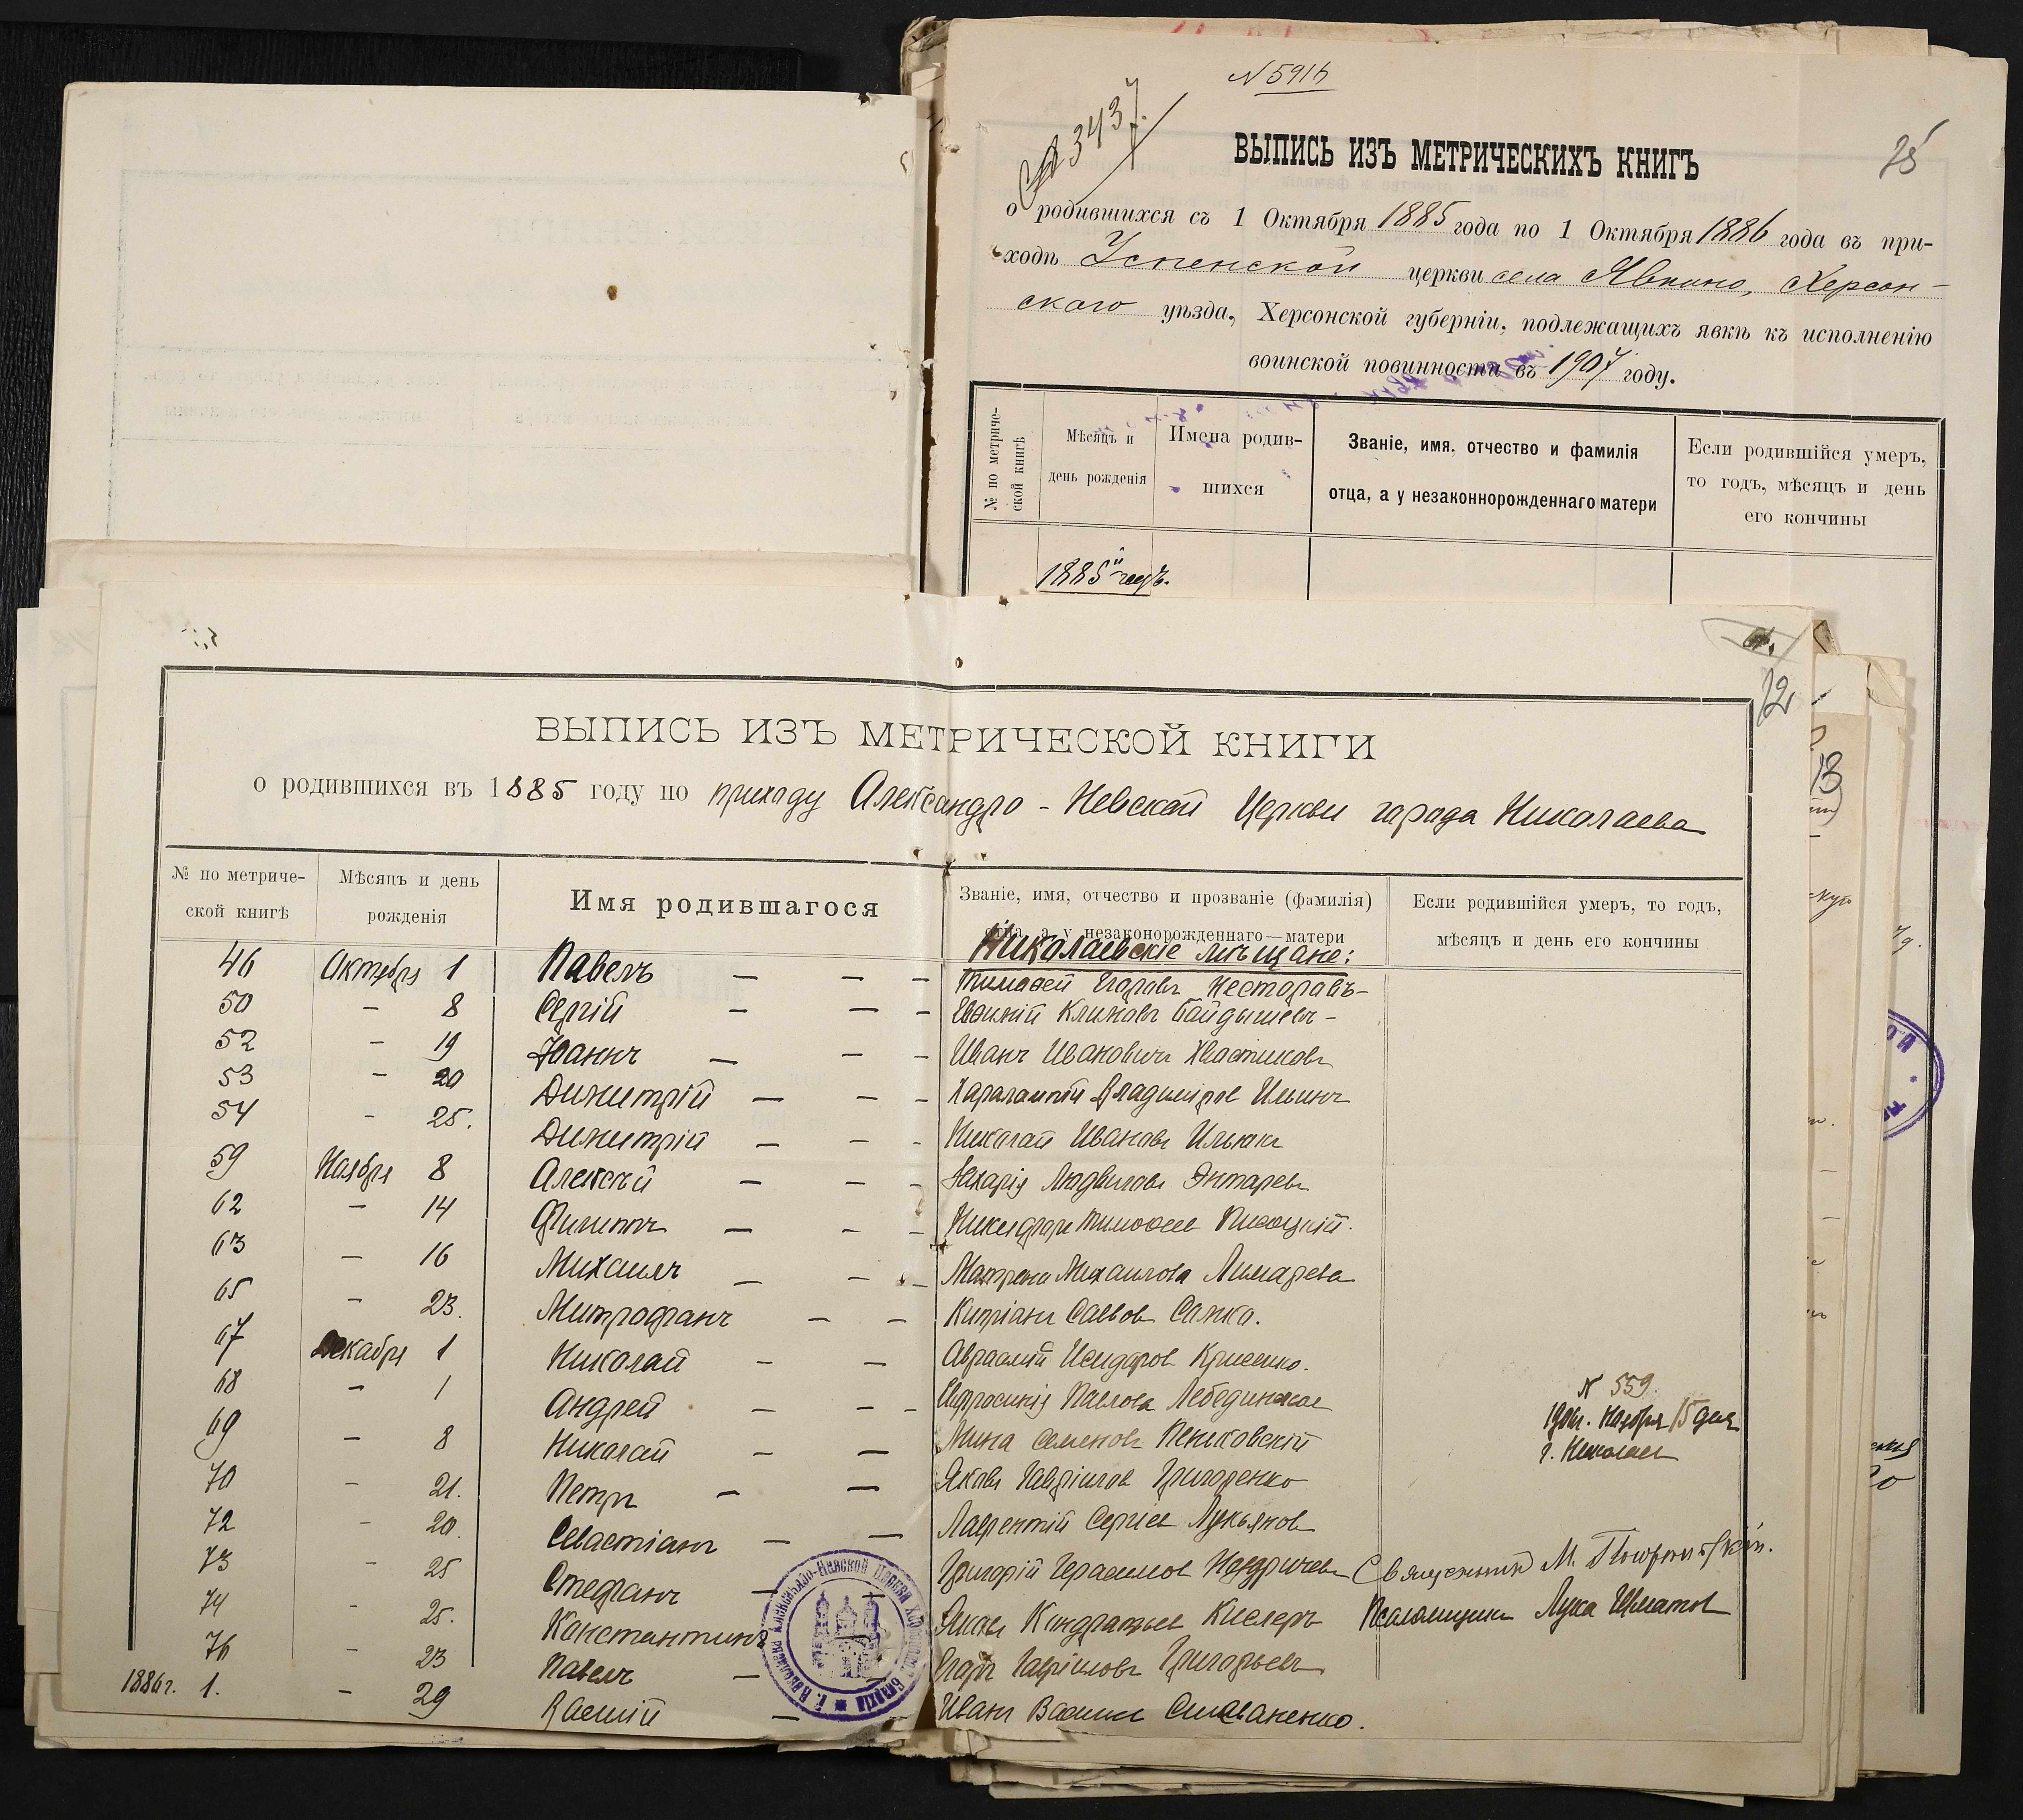 N 5916
№ 3437.
25
ВЫПИСЬ ИЗЪ МЕТРИЧЕСКИХЪ КНИГЪ
о родившихся съ 1 Октября 1885 года по 1 Октября 1886 года въ при-
ходѣ Успенской церкви села Явкино, Херсон-
скаго уѣзда, Херсонской губерніи, подлежащихъ явкѣ къ исполненію
воинской повинности въ 1907 году.
№ по метриче-
ской книгѣ
Мѣсяцъ и
день рожденія
Имена родив-
шихся
Званіе, имя, отчество и фамилія
отца, а у незаконнорожденнаго матери
Если родившійся умеръ,
то годъ, мѣсяцъ и день
его кончины
1885й годъ.
12
13
ВЫПИСЬ ИЗЪ МЕТРИЧЕСКОЙ КНИГИ
о родившихся въ 1885 году по приходу Александро-Невской Церкви города Николаева
№ по метриче-
ской книгѣ
Мѣсяцъ и день
рожденія
Имя родившагося
Званіе, имя, отчество и прозваніе (фамилія)
отца, а у незаконорожденнаго—матери
Если родившійся умеръ, то годъ,
мѣсяцъ и день его кончины
Николаевскіе мѣщане:
46 Октября 1 Павелъ — — — Тимоѳей Егоровъ Несторовъ —
50 — 8 Сергій — — — Евѳимій Климовъ Байдышевъ —
52 — 19 Іоаннъ — — — Иванъ Ивановичъ Хвастиковъ
53 — 20 Димитрій — — — Харалампій Владиміровъ Ильинъ
54 — 25. Димитрій — — — Николай Ивановъ Ильинъ
59 Ноября 8 Алексѣй — — — Захарія Людвиговъ
62 — 14 Филиппъ — — — Никифоръ Тимоѳеевъ
63 — 16 Михаилъ — — — Матрона Михаилова Лимарева
65 — 23. Митрофанъ — — Кипріанъ Саввовъ Самко.
67 Декабря 1 Николай — — Авраамій Исидоровъ
68 — 1 Андрей — — — Евфросинія Павлова Лебединская
69 — 8 Николай — — Мина Семеновъ Пеньковскій
70 — 21. Петръ — — Яковъ Гавріиловъ Григоренко
72 — 20. Севастіанъ — — Лаврентій Сергіевъ Лукьяновъ
73 — 25 Стефанъ — — Григорій Герасимовъ
74 — 25. Константинъ — Яковъ Кондратьевъ Кислеръ
76 — 23 Павелъ — — Егоръ Гавріиловъ Григорьевъ
1886г. 1. — 29 Василій — — Иванъ Васильевъ
N 559
1906г. Ноября 15 дня
г. Николаевъ
Священникъ М.
Псаломщикъ Лука